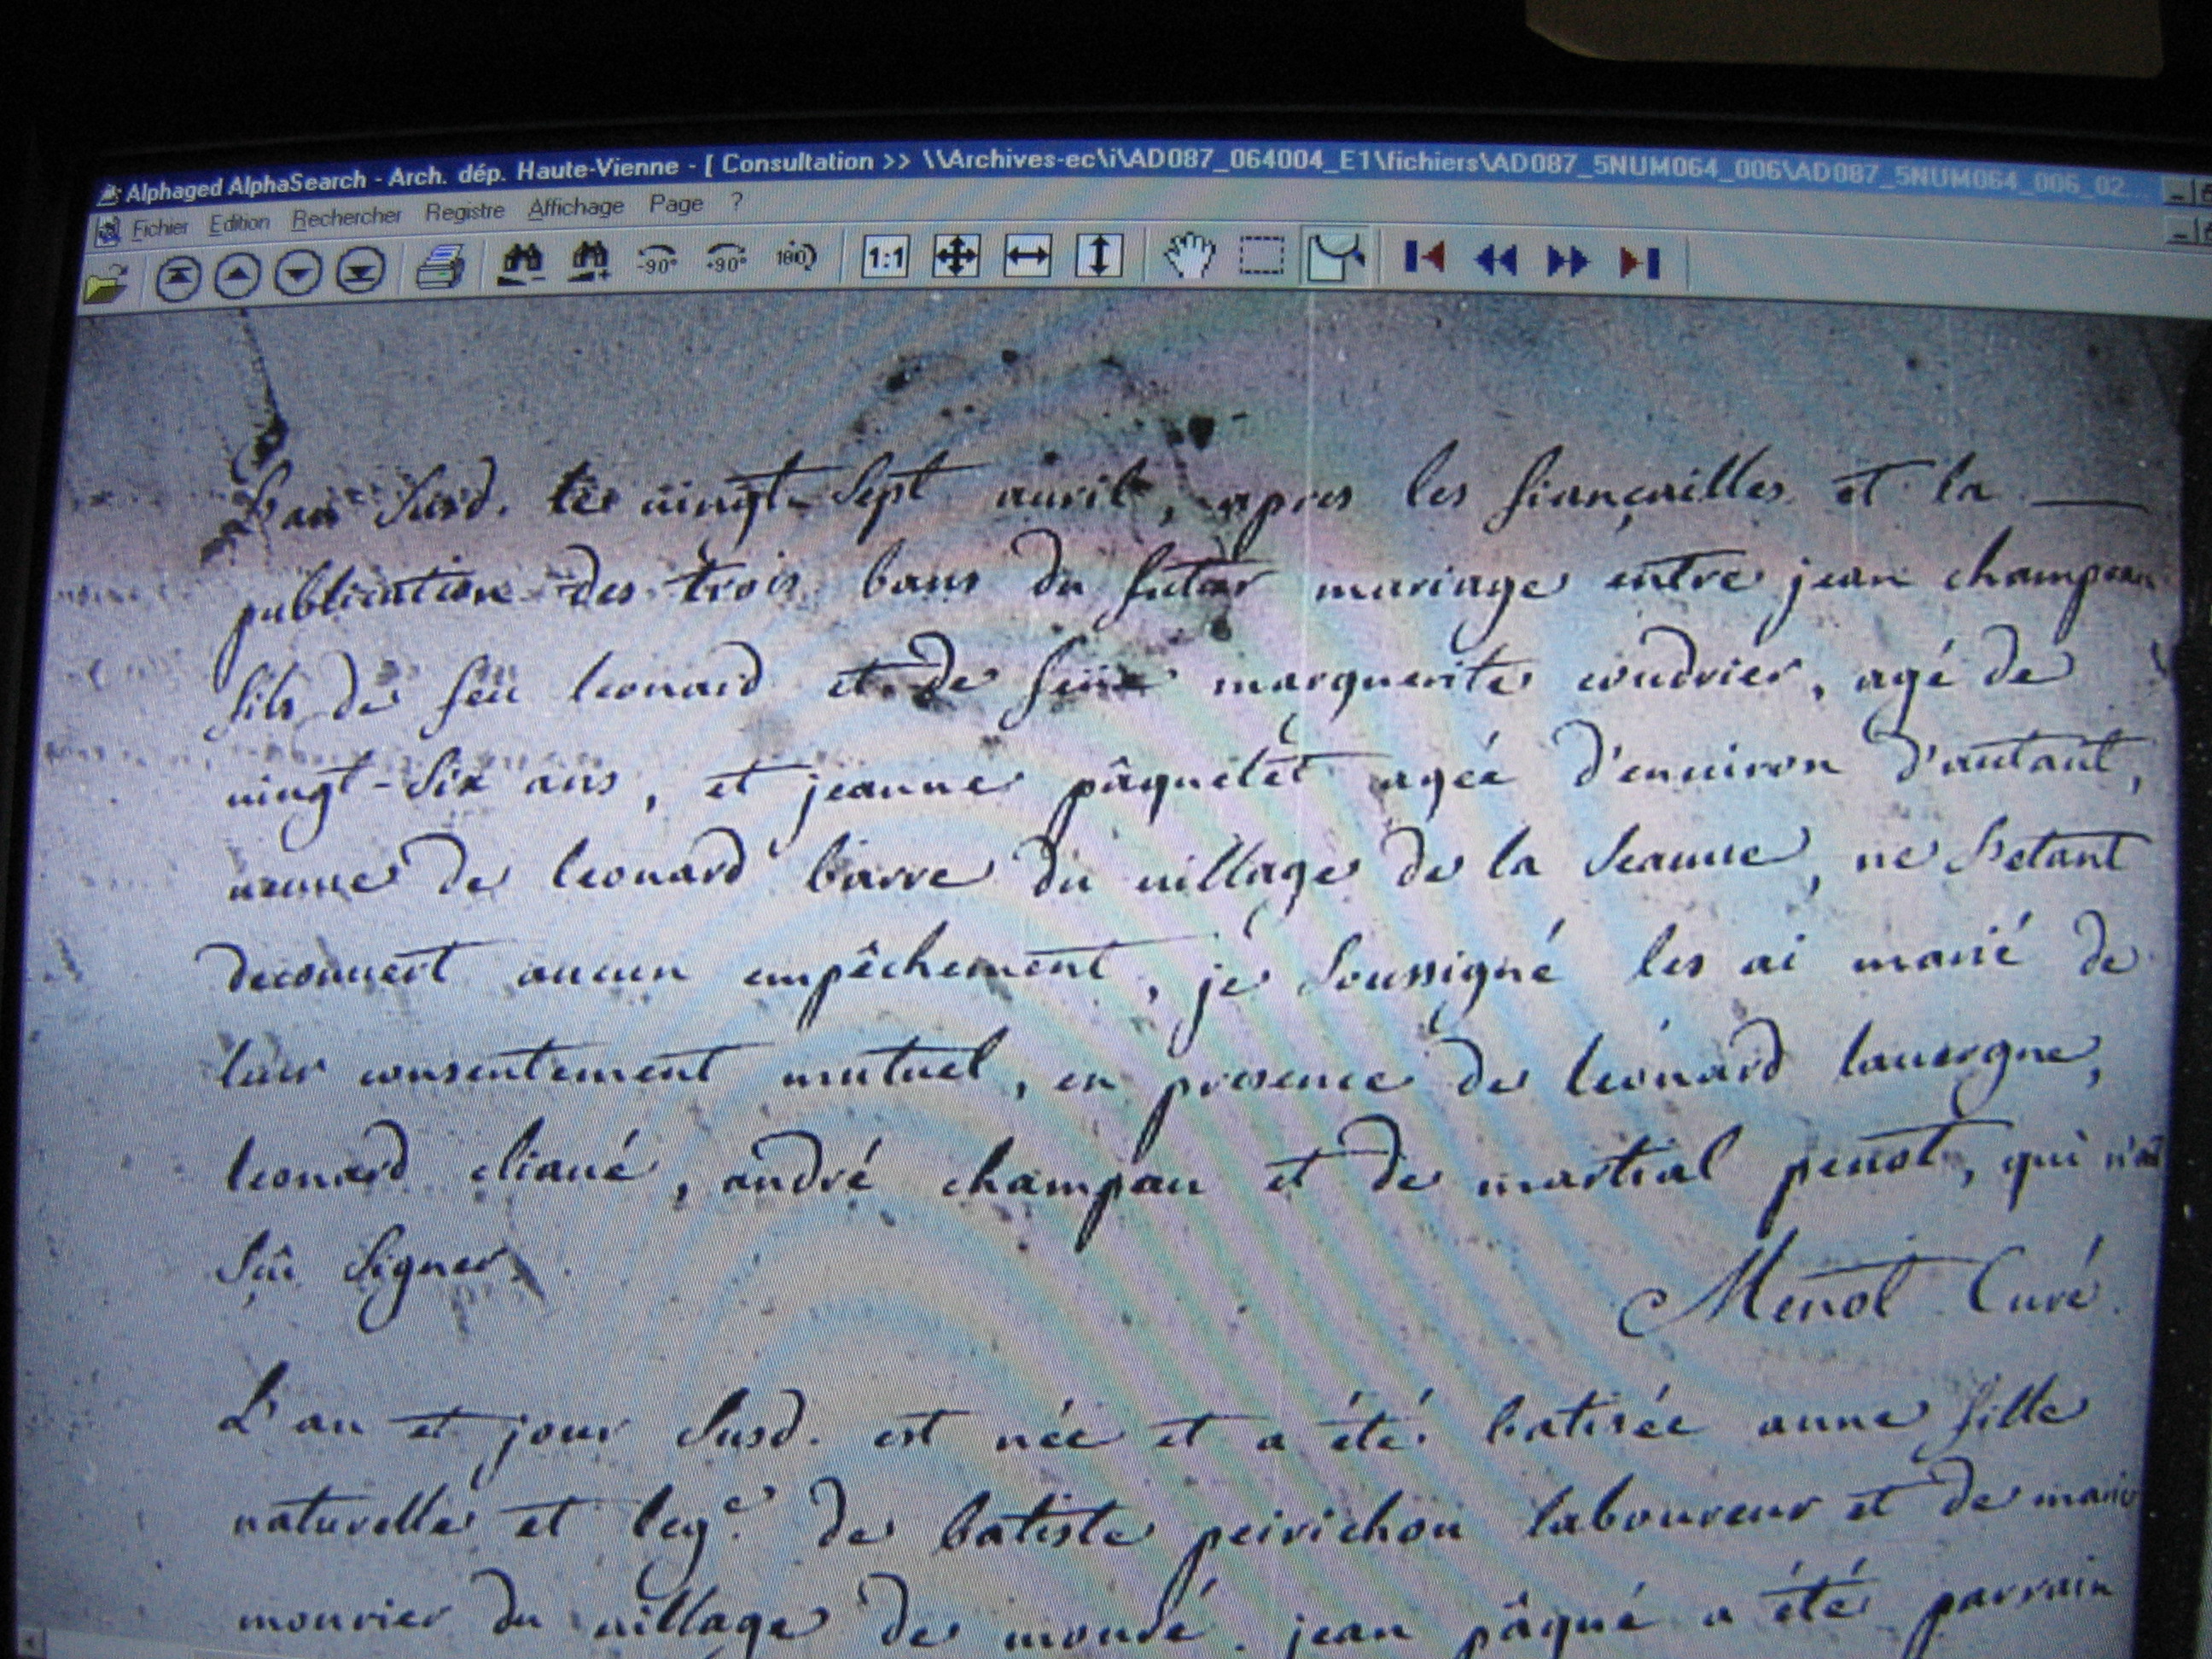 Alphaged AlphaSearch - Arch. dép. Haute-Vienne - [ Consultation >> \\Archives-ec\i\AD087_064004_E1\fichiers\AD087_5NUM064_006\AD087_5NUM064_006_02...
Fichier Edition Rechercher Registre Affichage Page ?
-90° +90° 180 1:1
L'an susd. le vingt-sept avril, apres les fiançailles et la
publication des trois bans du futur mariage entre jean champeau
fils de feu leonard et de feüe marguerite coudrier, agé de
vingt-six ans, et jeanne pâquetet agée d'environ d'autant,
veuve de leonard barre du village de la , ne s'etant
decouvert aucun empêchement, je soussigné les ai marié de
leur consentement mutuel, en presence de leonard lavergne,
leonard , andré champau et de martial penot, qui n'ont
sçû signer.
Menot Curé
L'an et jour susd. est née et a été batisée anne fille
naturelle et leg.e de batiste peirichou laboureur et de marie
mourier du village de . jean pâqué a été parrain